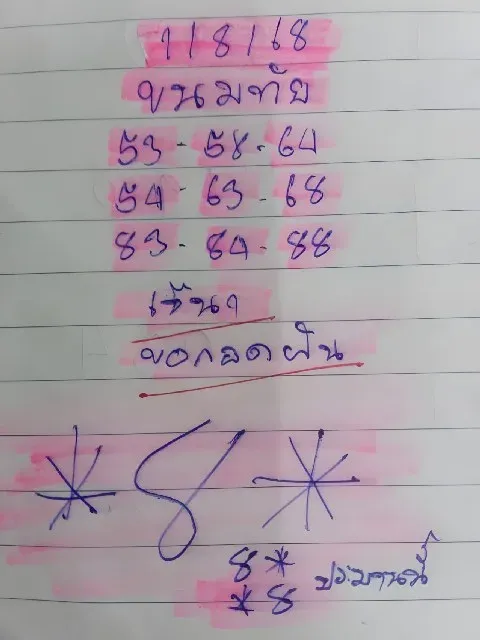 1/8/68
ขนมทัย
53-58-64
54-63-68
83-84-88
เจ๊นา
ขอกอดฝัน
*8*
8*
*8 ประมาณนี้